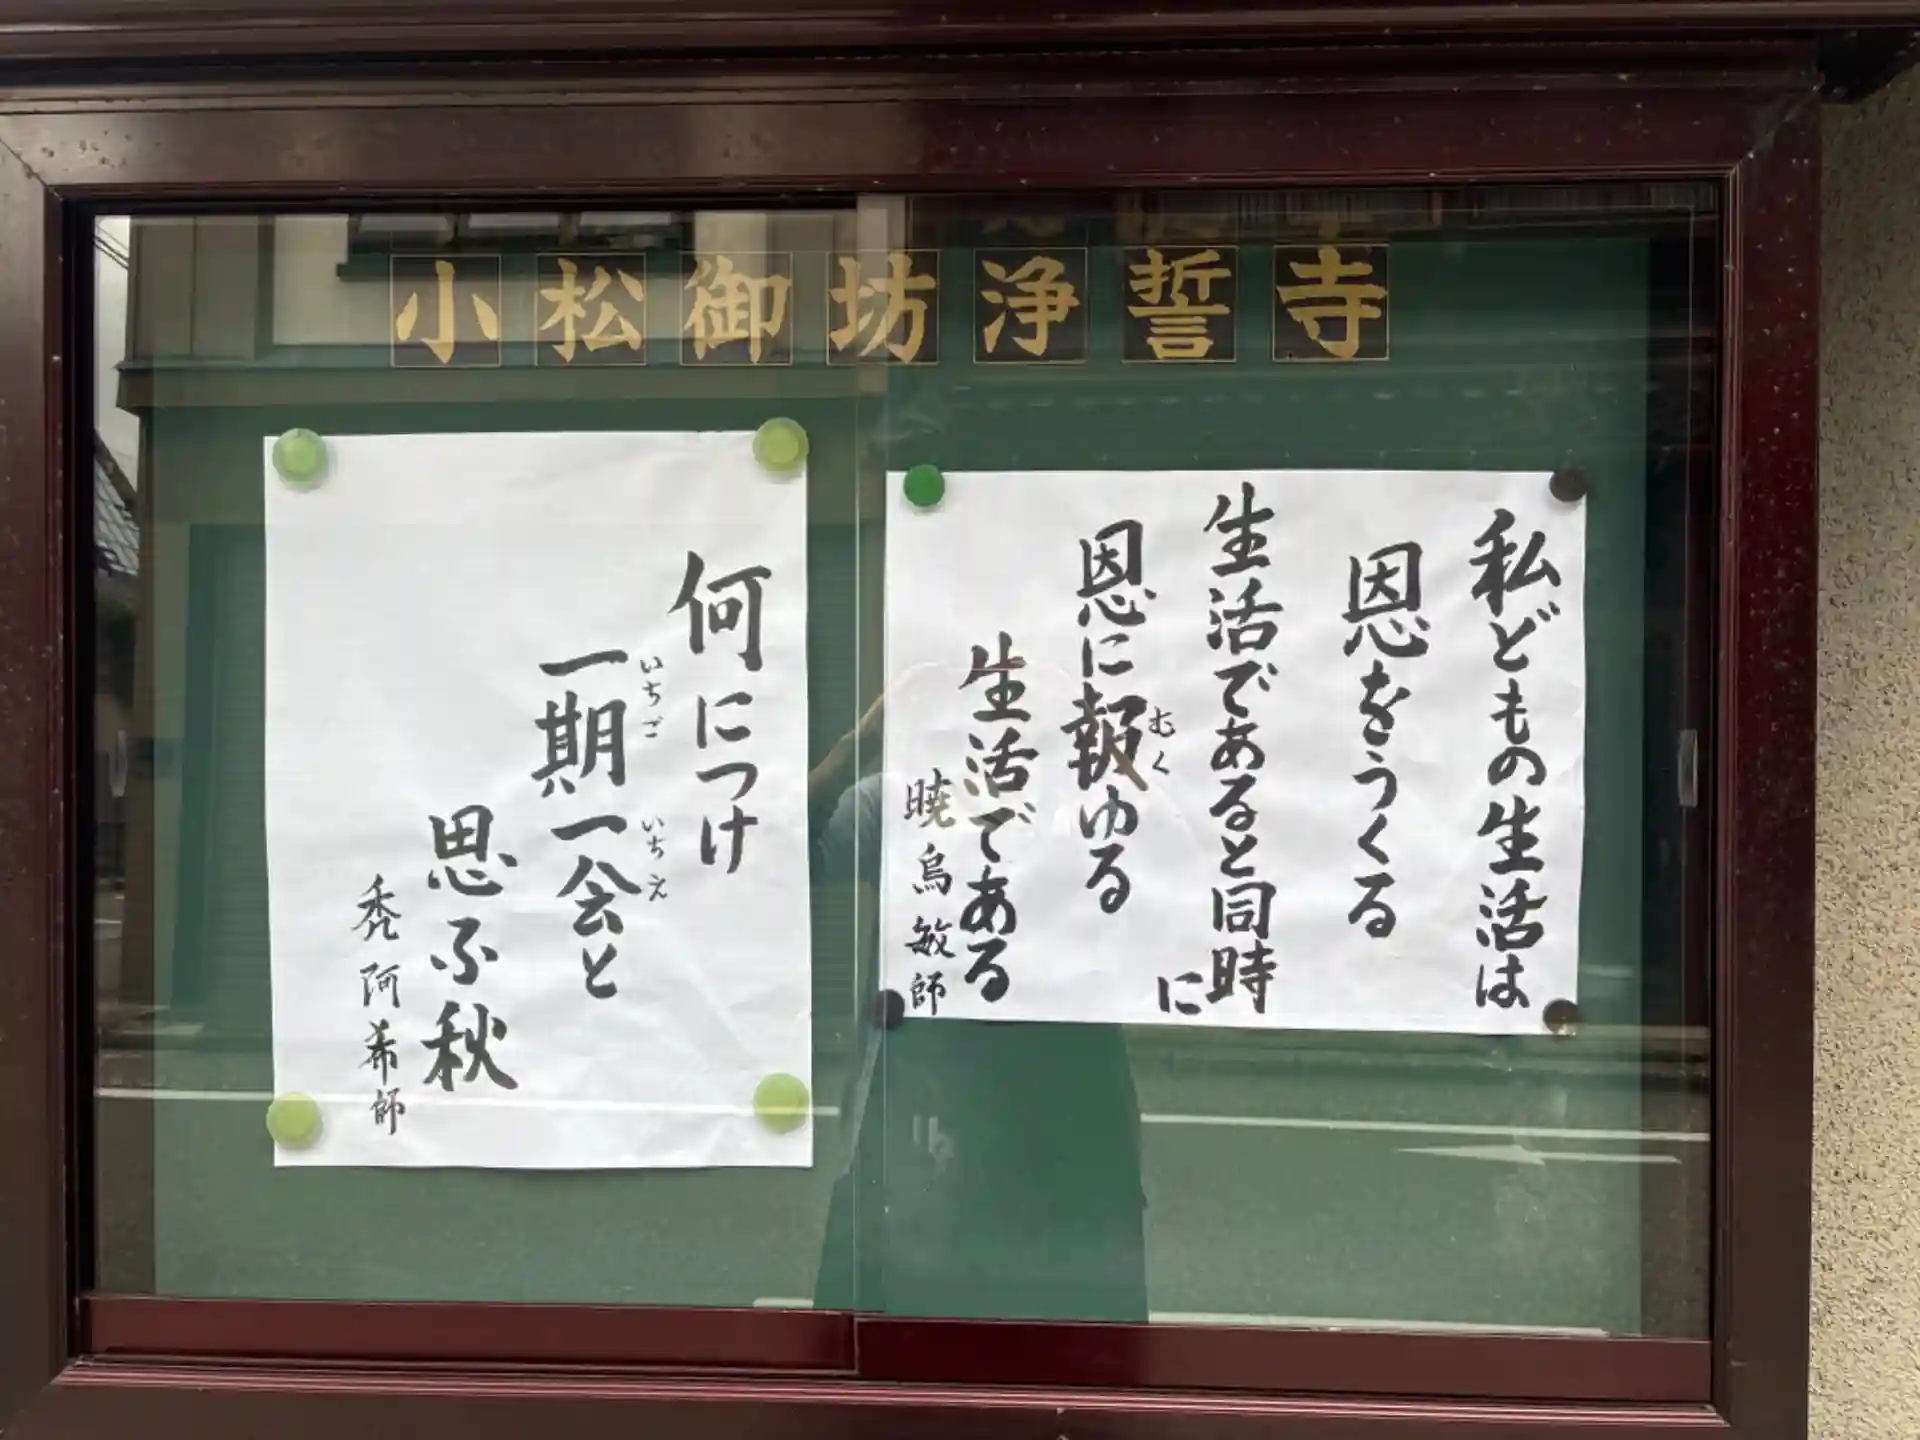 小松御坊浄誓寺
私どもの生活は
恩をうくる
生活であると同時に
恩に報ゆる
むく
生活である
暁烏敏師
何につけ
一期一会と
いちご いちえ
思ふ秋
禿阿希師